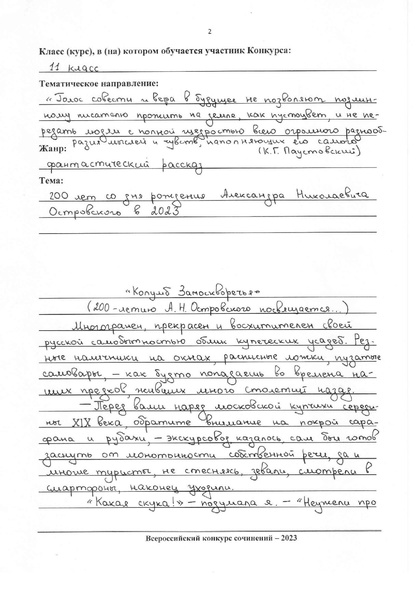 2
Класс (курс), в (на) котором обучается участник Конкурса:
11 класс
Тематическое направление:
"Голос совести и вера в будущее не позволяют подлин-
ному писателю прожить на земле, как пустоцвет, и не пе-
редать людям с полной щедростью всего огромного разнооб-
разия мыслей и чувств, наполняющих его самого
(К.Г. Паустовский)
Жанр:
фантастический рассказ
Тема:
200 лет со дня рождения Александра Николаевича
Островского в 2023
"Колумб Замоскворечья"
(200-летию А.Н. Островского посвящается...)
Многогранен, прекрасен и восхитителен своей
русской самобытностью облик купеческих усадеб. Рез-
ные наличники на окнах, расписные ложки, пузатые
самовары, – как будто попадаешь во времена на-
ших предков, живших много столетий назад.
– Перед вами наряд московской купчихи середи-
ны XIX века, обратите внимание на покрой сара-
фана и рубахи, – экскурсовод казалось сам был готов
заснуть от монотонности собственной речи, да и
многие туристы, не стесняясь, зевали, смотрели в
смартфоны, наконец уходили.
"Какая скука!" – подумала я. – "Неужели про
Всероссийский конкурс сочинений – 2023